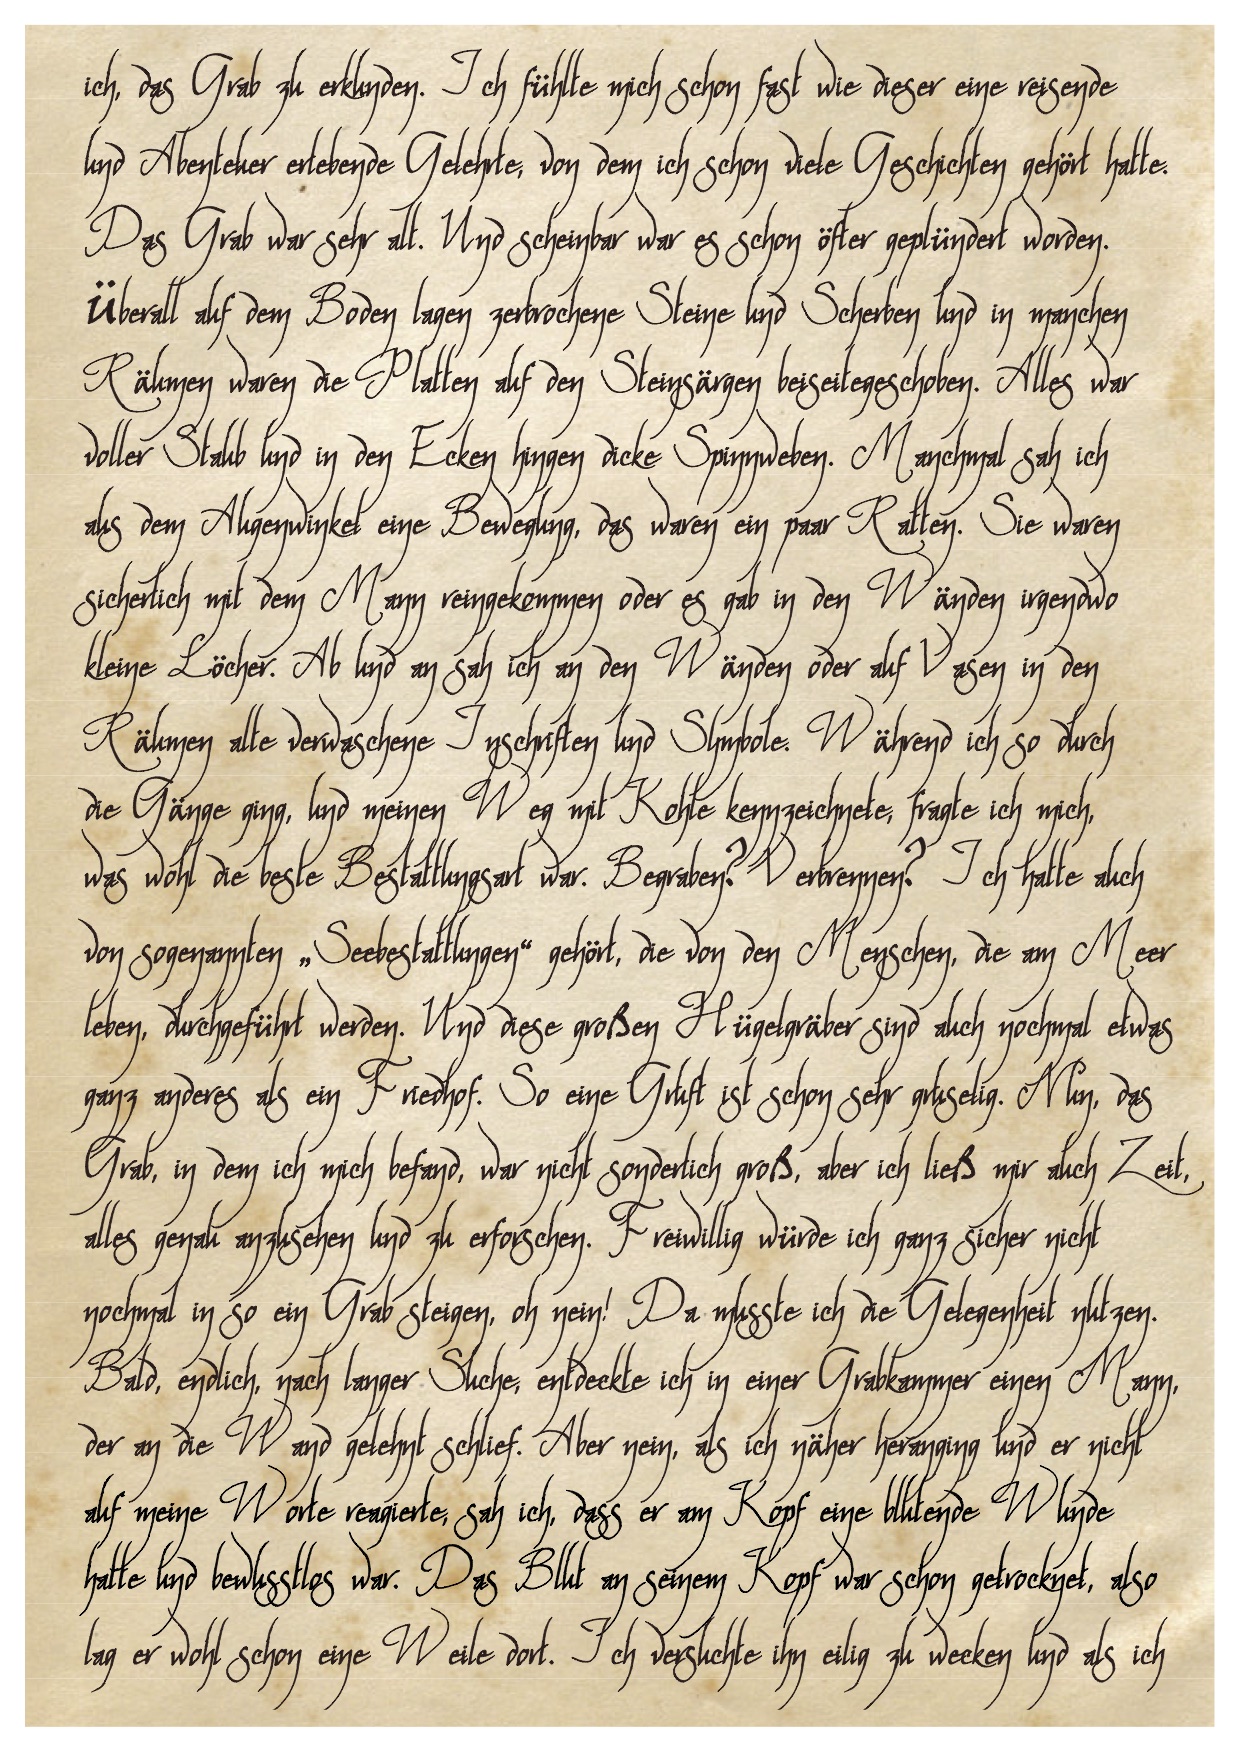 ich, das Grab zu erkunden. Ich fühlte mich schon fast wie dieser eine reisende
und Abenteuer erlebende Gelehrte, von dem ich schon viele Geschichten gehört hatte.
Das Grab war sehr alt. Und scheinbar war es schon öfter geplündert worden.
Überall auf dem Boden lagen zerbrochene Steine und Scherben und in manchen
Räumen waren die Platten auf den Steinsärgen beiseitegeschoben. Alles war
voller Staub und in den Ecken hingen dicke Spinnweben. Manchmal sah ich
aus dem Augenwinkel eine Bewegung, das waren ein paar Ratten. Sie waren
sicherlich mit dem Mann reingekommen oder es gab in den Wänden irgendwo
kleine Löcher. Ab und an sah ich an den Wänden oder auf Vasen in den
Räumen alte verwaschene Inschriften und Symbole. Während ich so durch
die Gänge ging, und meinen Weg mit Kohle kennzeichnete, fragte ich mich,
was wohl die beste Bestattungsart war. Begraben? Verbrennen? Ich hatte auch
von sogenannten „Seebestattungen“ gehört, die von den Menschen, die am Meer
leben, durchgeführt werden. Und diese großen Hügelgräber sind auch nochmal etwas
ganz anderes als ein Friedhof. So eine Gruft ist schon sehr gruselig. Nun, das
Grab, in dem ich mich befand, war nicht sonderlich groß, aber ich ließ mir auch Zeit,
alles genau anzusehen und zu erforschen. Freiwillig würde ich ganz sicher nicht
nochmal in so ein Grab steigen, oh nein! Da musste ich die Gelegenheit nutzen.
Bald, endlich, nach langer Suche, entdeckte ich in einer Grabkammer einen Mann,
der an die Wand gelehnt schlief. Aber nein, als ich näher heranging und er nicht
auf meine Worte reagierte, sah ich, dass er am Kopf eine blutende Wunde
hatte und bewusstlos war. Das Blut an seinem Kopf war schon getrocknet, also
lag er wohl schon eine Weile dort. Ich versuchte ihn eilig zu wecken und als ich